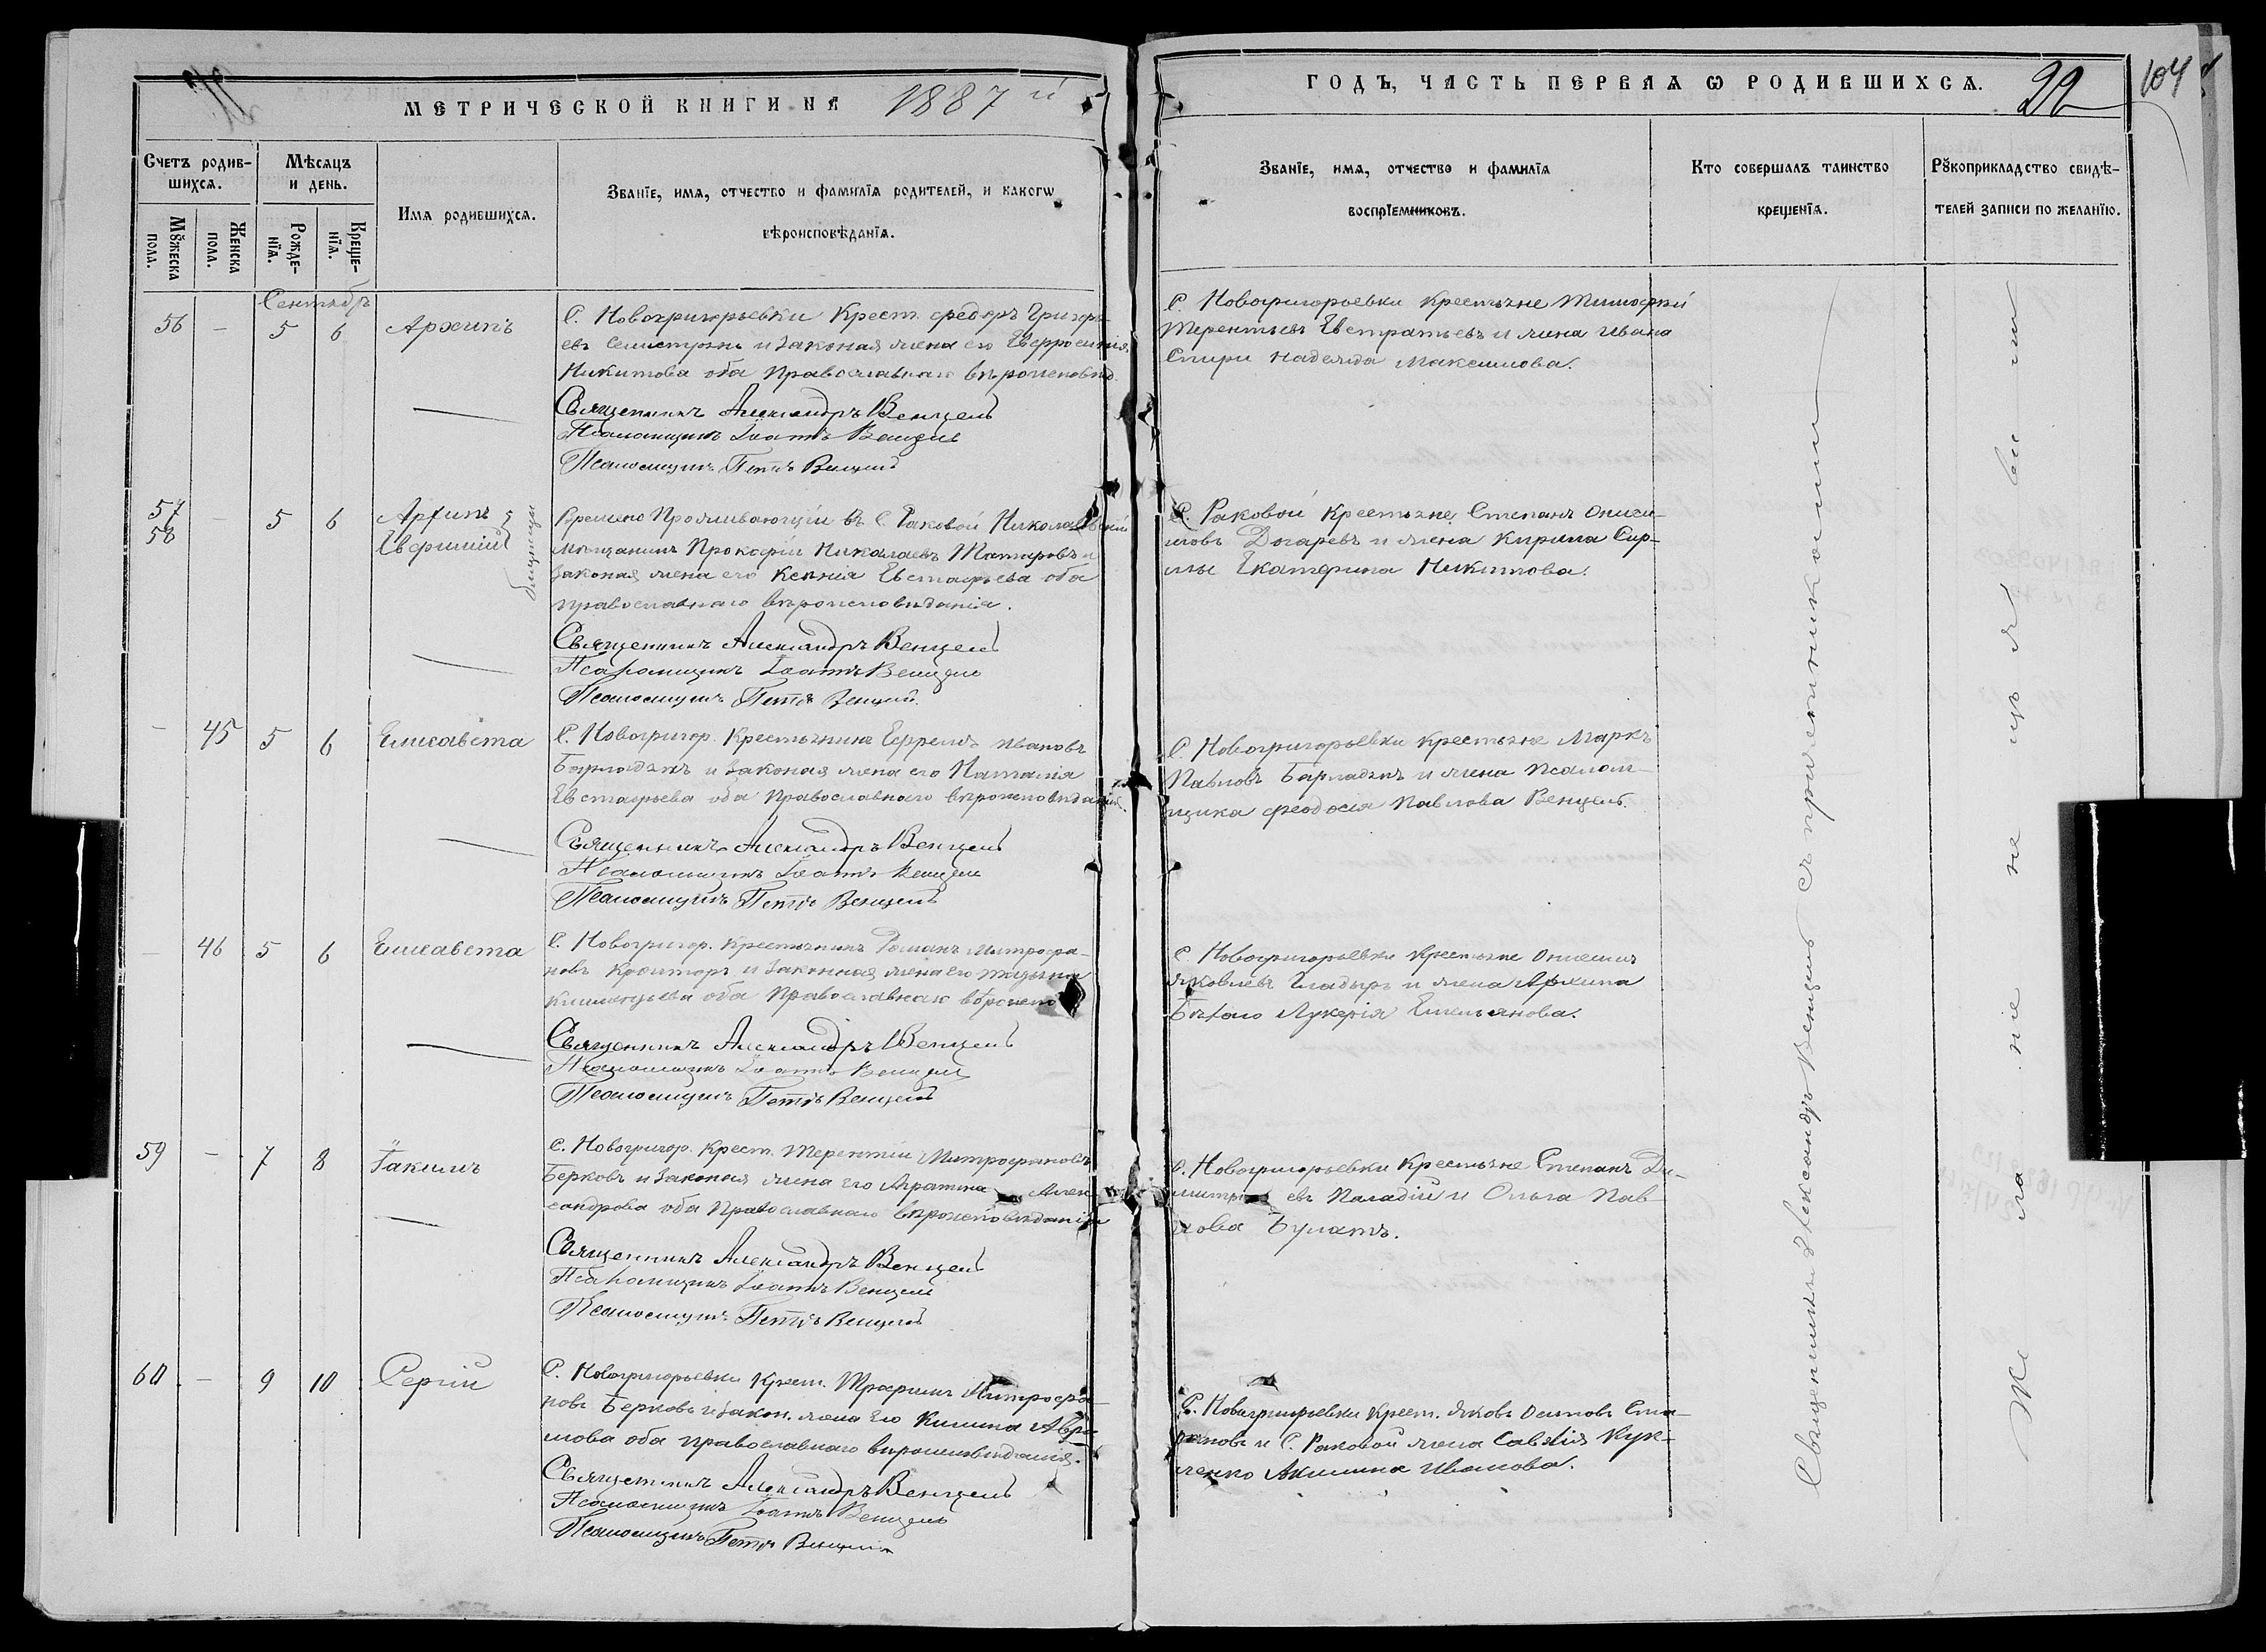 МЕТРИЧЕСКОЙ КНИГИ НА 1887 й
ГОДЪ, ЧАСТЬ ПЕРВАЯ Ѡ РОДИВШИХСЯ. 22
104
Счетъ родив-
шихся.
Мѣсяцъ
и день.
Имя родившихся.
Званїе, имя, отчество и фамилїя родителей, и какогѡ
вѣроисповѣданїя.
Мꙋжеска
пола.
Женска
пола.
Рожде-
нїя.
Креще-
нїя.
Званїе, имя, отчество и фамилїя
воспрїемниковъ.
Кто совершалъ таинство
крещенїя.
Рꙋкоприкладство свидѣ-
телей записи по желанїю.
Сентябр
56 — 5 6 Архипъ
С. Новогригорьевки Крест. Федоръ Григорь-
евъ и Законая жена его Евфросинія
Никитова оба Православнаго вѣроисповѣд.
Священникъ Александръ Венцель
Псаломщикъ Іоаннъ Венцель
Псаломщикъ Петръ Венцель
С. Новогригорьевки Крестьяне Тимофей
Терентьевъ Евстратьевъ и жена Ивана
Спири Надежда Максимова.
57
58
— 5 6 Архипъ
Евфимій
близнецы
Времено Проживающіи въ С. Раковой Николаевскій
мѣщанинъ Прокофій Николаевъ Татаровъ и
Законая жена его Ксенія Евстафьева оба
православнаго вѣроисповѣданія.
Священникъ Александръ Венцель
Псаломщикъ Іоаннъ Венцель
Псаломщикъ Петръ Венцель
С. Раковой Крестьяне Степанъ Ониси-
мовъ Догаревъ и жена Кирила Сыр-
мы Екатерина Никитова.
— 45 5 6 Елисавета
С. Новогригор. Крестьянинъ Ефремъ Ивановъ
Барладянъ и Законая жена его Наталія
Евстафьева оба Православнаго вѣроисповѣданія.
Священникъ Александръ Венцель
Псаломщикъ Іоаннъ Венцель
Псаломщикъ Петръ Венцель
С. Новогригорьевки Крестьяне Маркъ
Павловъ Барладянъ и жена Псалом-
щика Феодосія Павлова Венцель.
— 46 5 6 Елисавета
С. Новогригор. Крестьянинъ Романъ Митрофа-
новъ Кроиторъ и Законная жена его
оба Православнаго вѣроиспо
Священникъ Александръ Венцель
Псаломщикъ Іоаннъ Венцель
Псаломщикъ Петръ Венцель
С. Новогригорьевки Крестьяне Онисимъ
Яковлевъ Гладыръ и жена Архипа
Бѣлаго Лукерія Емельянова.
59 — 7 8 Іакимъ
С. Новогригор. Крест. Терентій Митрофановъ
Берковъ и Законая жена его Алек
сандрова оба Православнаго вѣроисповѣданія
Священникъ Александръ Венцель
Псаломщикъ Іоаннъ Венцель
Псаломщикъ Петръ Венцель
С. Новогригорьевки Крестьяне Степанъ Ди-
митріевъ Паладій и Ольга Пав-
лова Булатъ.
60 — 9 10 Сергій
С. Новогригорьевки Крест. Митрофа-
новъ Берковъ и Закон. жена его Акилина
оба православнаго вѣроисповѣданія.
Священникъ Александръ Венцель
Псаломщикъ Іоаннъ Венцель
Псаломщикъ Петръ Венцель
С. Новогригорьевки Крест. Яковъ Осиповъ
и С. Раковой жена Савелія Кук-
ленко Акилина Иванова.
Священникъ Александръ Венцель съ причетниками
Же ла ніе не